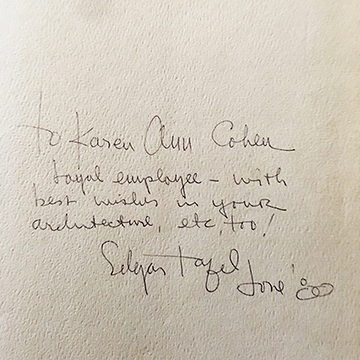 to Karen Ann Cohen
Loyal employee – with
best wishes in your
architecture, etc, too!
Edgar Tafel
June '80